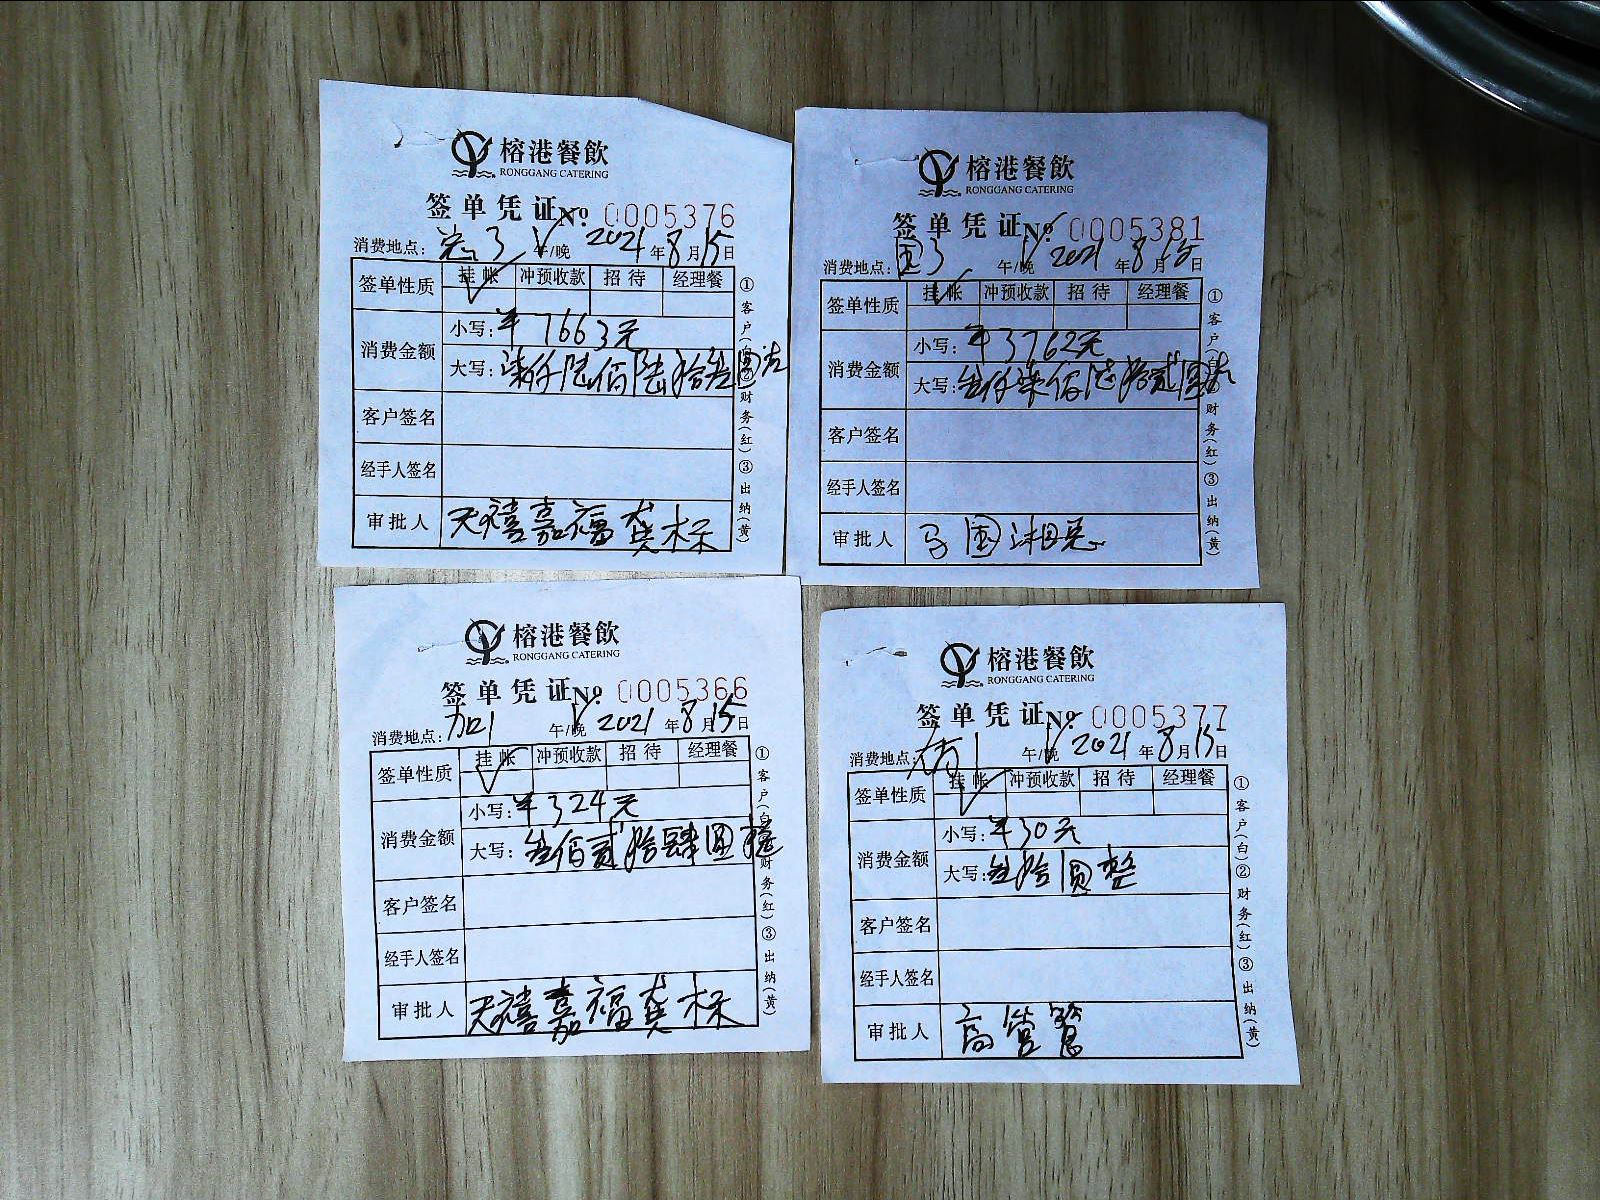 榕港餐飲
RONGGANG CATERING
签单凭证 No 0005376
消费地点: 3 午/晚 2021年8月15日
签单性质 挂帐 冲预收款 招待 经理餐
消费金额 小写: ¥7663元
大写: 柒仟陆佰陆拾叁圆
客户签名
经手人签名
审批人 天禧嘉福龚标
①客户(白)②财务(红)③出纳(黄)
榕港餐飲
RONGGANG CATERING
签单凭证 No 0005381
消费地点: 国3 午/晚 2021年8月15日
签单性质 挂帐 冲预收款 招待 经理餐
消费金额 小写: ¥3762元
大写: 叁仟柒佰陆拾贰圆
客户签名
经手人签名
审批人 国湘
①客户(白)②财务(红)③出纳(黄)
榕港餐飲
RONGGANG CATERING
签单凭证 No 0005366
消费地点: 加1 午/晚 2021年8月15日
签单性质 挂帐 冲预收款 招待 经理餐
消费金额 小写: ¥324元
大写: 叁佰贰拾肆圆整
客户签名
经手人签名
审批人 天禧嘉福龚标
①客户(白)②财务(红)③出纳(黄)
榕港餐飲
RONGGANG CATERING
签单凭证 No 0005377
消费地点: 1 午/晚 2021年8月15日
签单性质 挂帐 冲预收款 招待 经理餐
消费金额 小写: ¥30元
大写: 叁拾圆整
客户签名
经手人签名
审批人 高管
①客户(白)②财务(红)③出纳(黄)